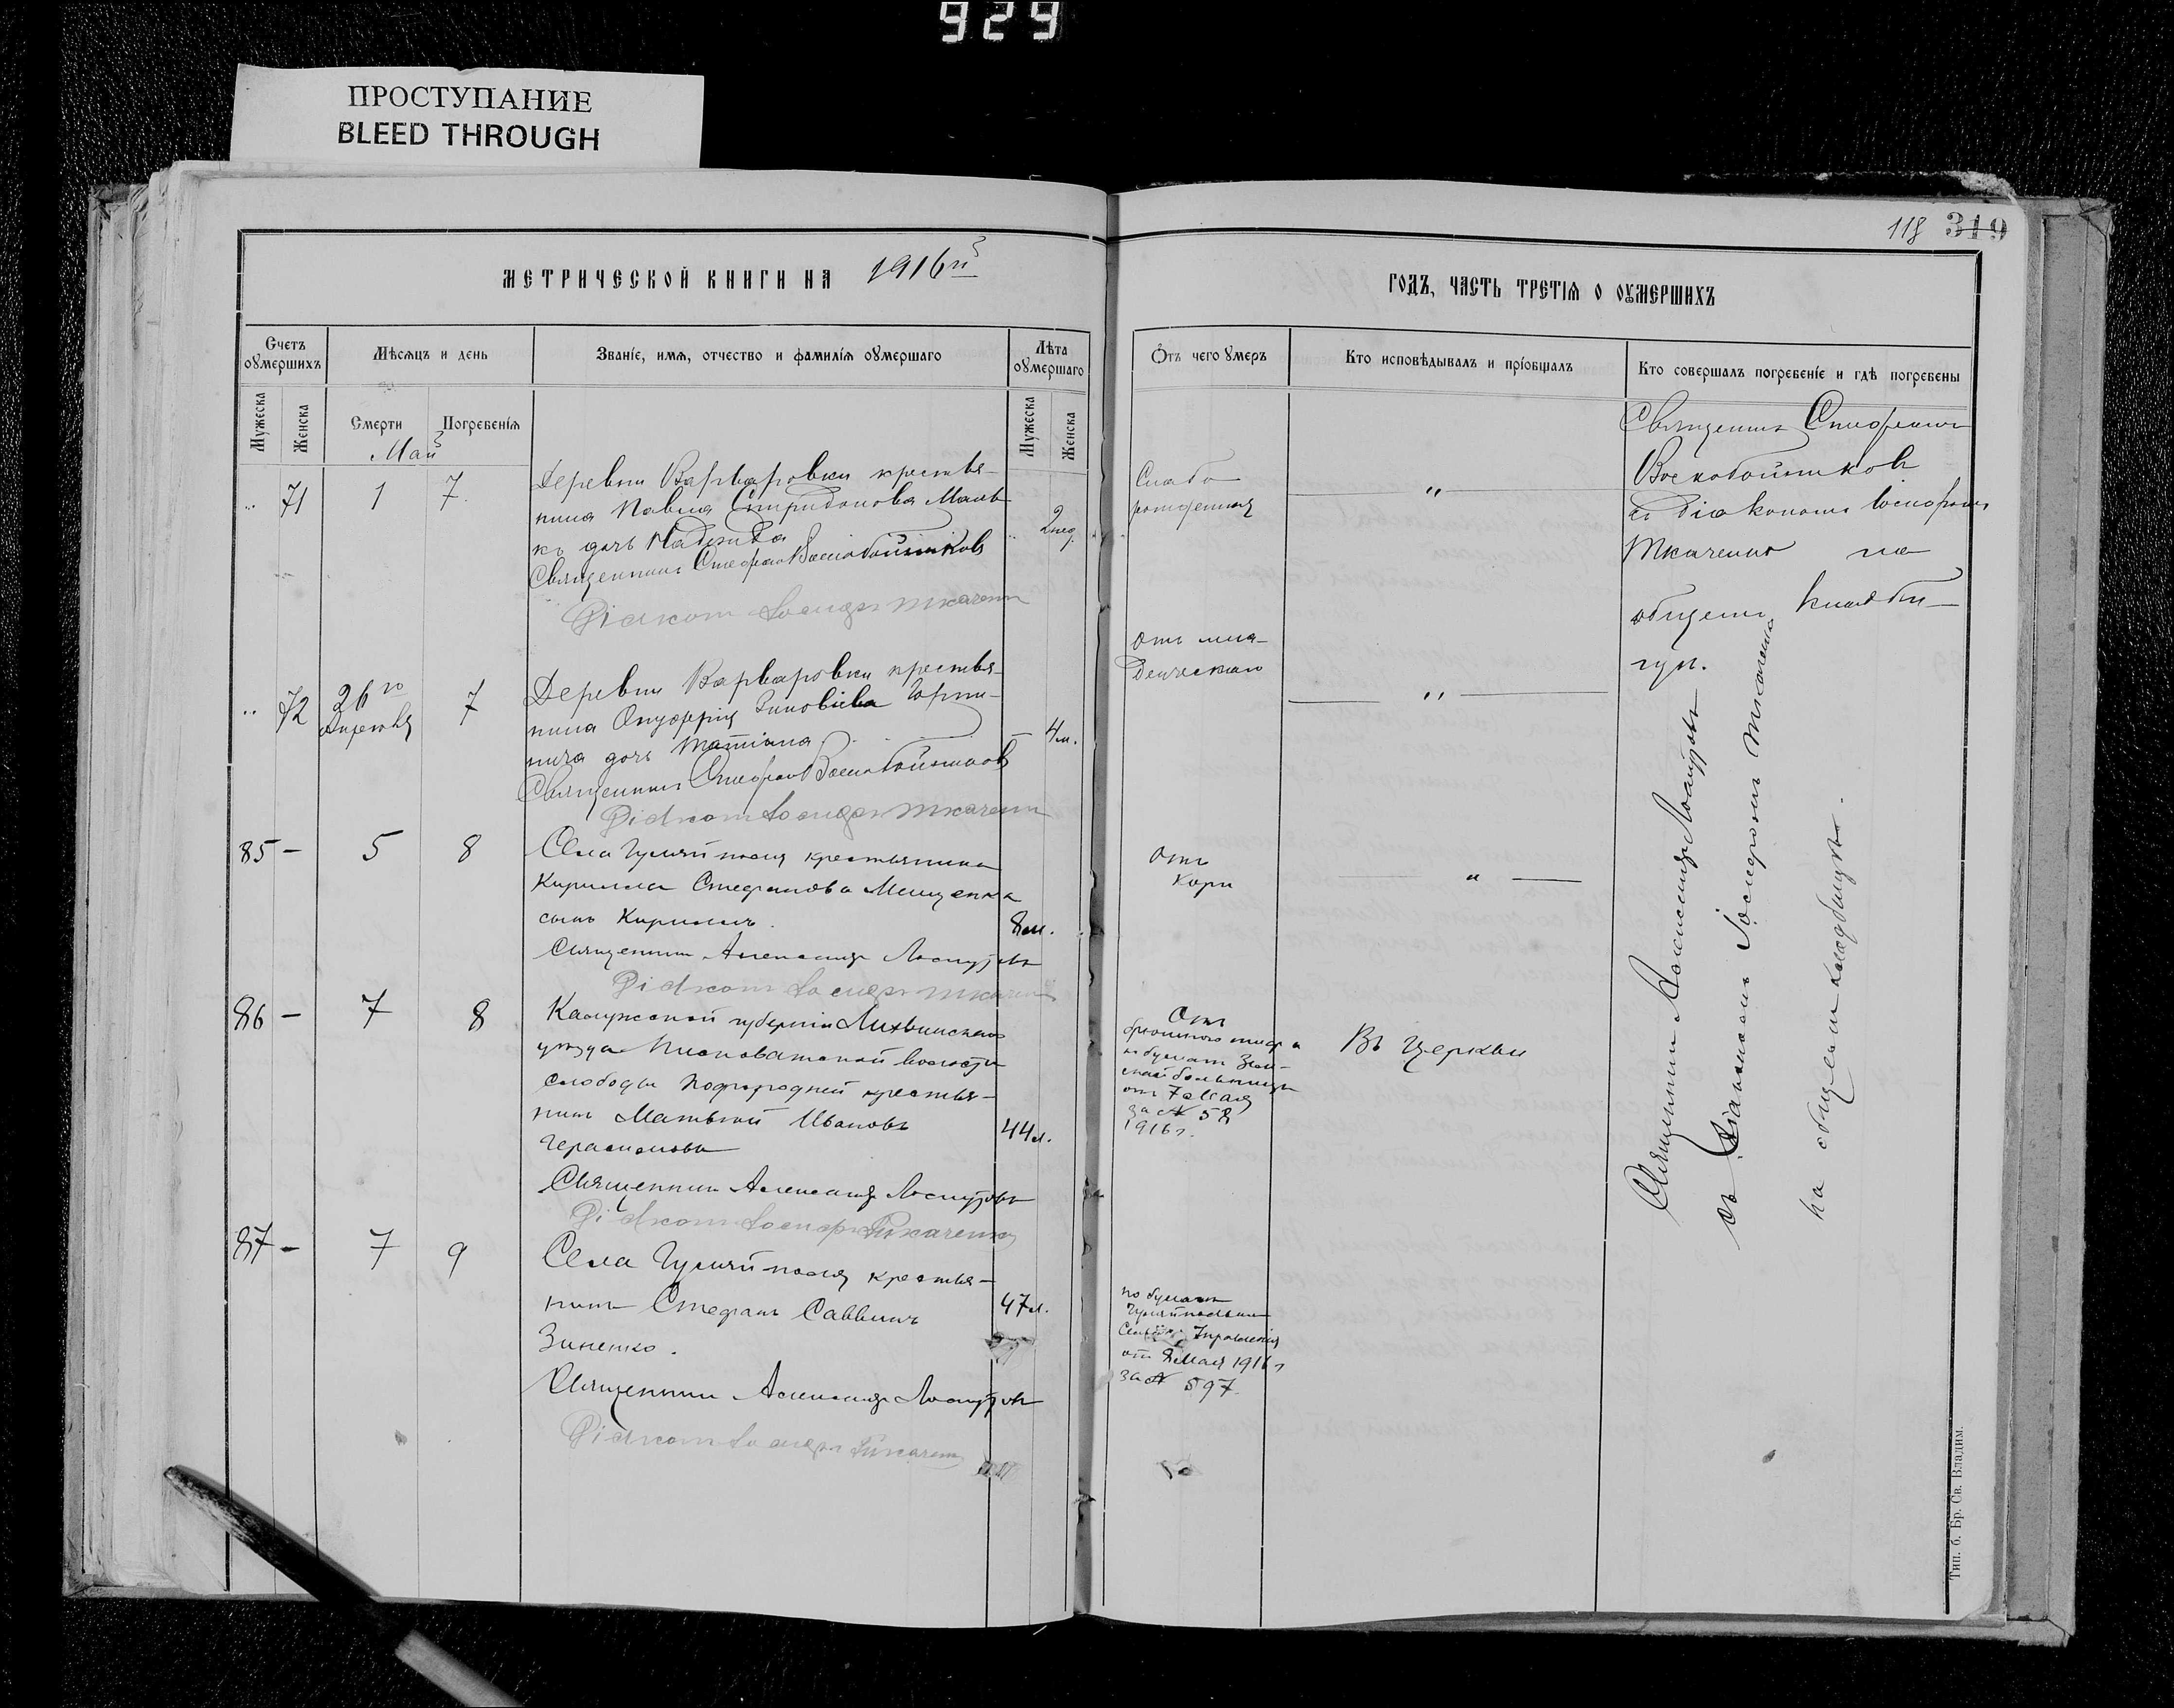 929
ПРОСТУПАНИЕ
BLEED THROUGH
118 319
МЕТРИЧЕСКОЙ КНИГИ НА 1916й
ГОДЪ, ЧАСТЬ ТРЕТІЯ О ОУМЕРШИХЪ
Счетъ оумершихъ
Мѣсяцъ и день
Званіе, имя, отчество и фамилія оумершаго
Лѣта оумершаго
Отъ чего умеръ
Кто исповѣдывалъ и пріобщалъ
Кто совершалъ погребеніе и гдѣ погребены
Мужеска
Женска
Смерти
Погребенія
Мужеска
Женска
Май
71 1 7
Деревни Варваровки крестья-
нина Павла Спиридонова
дочь Надежда
Священникъ Стефанъ Воскобойниковъ
Діаконъ Іосифъ Ткаченко
2 нед.
Слабо
рожденная
"
Священникъ Стефанъ
Воскобойниковъ
съ діакономъ Іосифомъ
Ткаченко на
общемъ кладби-
щѣ.
72 26го Апрѣля 7
Деревни Варваровки крестья-
нина Онуфрія Зиновіева
дочь Татіана
Священникъ Стефанъ Воскобойниковъ
Діаконъ Іосифъ Ткаченко
4 м.
Отъ мла-
денческаго
"
85 - 5 8
Села Гуляйполя крестьянина
Кирилла Стефанова Мищенка
сынъ Кириллъ.
Священникъ Александръ Лоскутовъ
Діаконъ Іосифъ Ткаченко
8 м.
Отъ
кори
"
86 - 7 8
Калужской губерніи Лихвинскаго
уѣзда волости
слободы Подгородней крестья-
нинъ Матвей Ивановъ
Герасимовъ
Священникъ Александръ Лоскутовъ
Діаконъ Іосифъ Ткаченко
44 л.
Отъ
брюшного тифа
по бумагѣ Зем-
ской больницы
отъ 7 Мая
за № 58
1916 г.
Въ церкви
87 - 7 9
Села Гуляйполя крестья-
нинъ Стефанъ Саввинъ
Зиненко.
Священникъ Александръ Лоскутовъ
Діаконъ Іосифъ Ткаченко
47 л.
по бумагѣ
Гуляйпольскаго
Управленія
отъ 8 Мая 1916 г
за № 597.
Священникъ Александръ Лоскутовъ
съ Діакономъ Іосифомъ Ткаченко
на общемъ кладбищѣ.
Тип. б. Бр. Св. Владим.